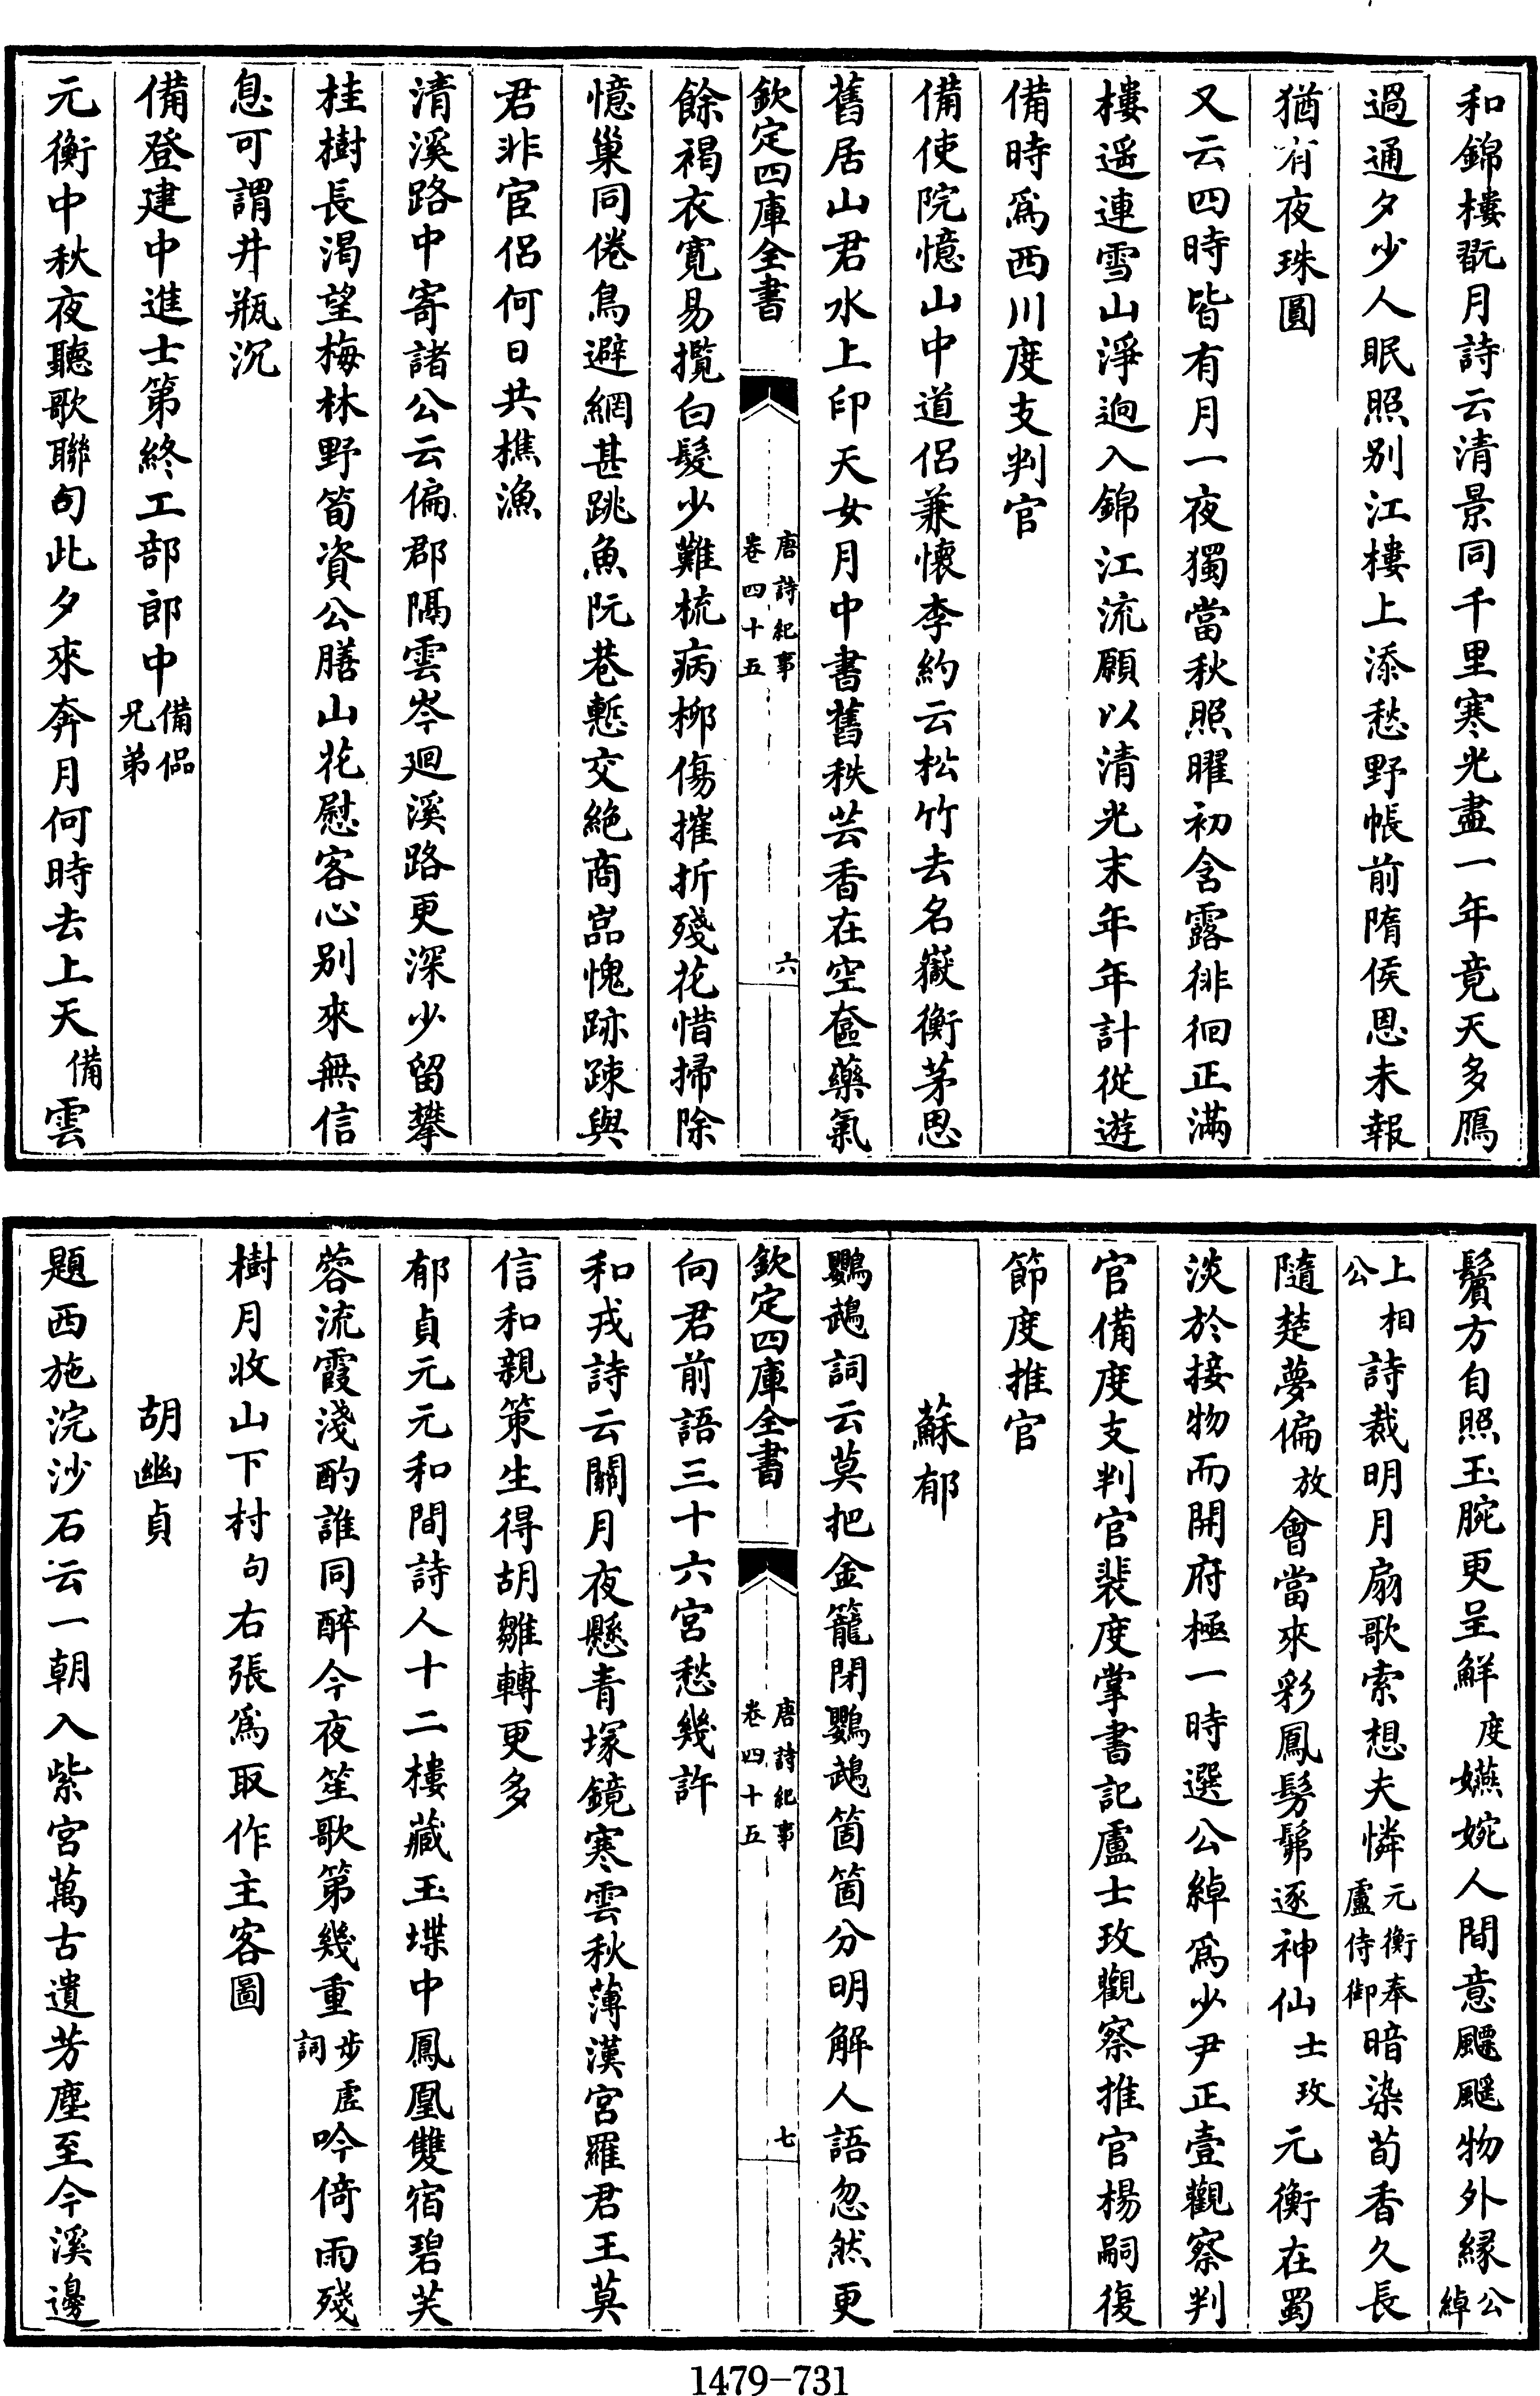 和錦樓翫月詩云清景同千里寒光盡一年竟天多鴈
過通夕少人眠照别江樓上添愁野帳前隋侯恩未報
猶有夜珠圓
又云四時皆有月一夜獨當秋照曜初含露徘徊正滿
樓遥連雪山淨逈入錦江流願以清光末年年計從遊
備時爲西川度支判官
備使院憶山中道侣兼懷李約云松竹去名嶽衡茅思
舊居山君水上印天女月中書舊秩芸香在空奩藥氣
欽定四庫全書
唐詩紀事
卷四十五
六
餘褐衣寛易攬白髮少難梳病柳傷摧折殘花惜掃除
憶巢同倦鳥避網甚跳魚阮巷慙交絶商嵓愧跡疎與
君非宦侣何日共樵漁
清溪路中寄諸公云偏郡隔雲岑廻溪路更深少留攀
桂樹長渴望梅林野筍資公膳山花慰客心别來無信
息可謂井瓶沉
備登建中進士第終工部郎中備侶
兄弟
元衡中秋夜聽歌聯句此夕來奔月何時去上天備雲
鬢方自照玉腕更呈鮮度嬿婉人間意飃飖物外縁公
綽
上相
公詩裁明月扇歌索想夫憐元衡奉
盧侍御暗染荀香久長
隨楚夢偏放會當來彩鳳髣髴逐神仙士玫元衡在蜀
淡於接物而開府極一時選公綽爲少尹正壹觀察判
官備度支判官裴度掌書記盧士玫觀察推官楊嗣復
節度推官
蘇郁
鸚鵡詞云莫把金籠閉鸚鵡箇箇分明解人語忽然更
欽定四庫全書
唐詩紀事
卷四十五
七
向君前語三十六宮愁幾許
和戎詩云關月夜懸青塚鏡寒雲秋薄漢宮羅君王莫
信和親策生得胡雛轉更多
郁貞元元和間詩人十二樓藏玉堞中鳳凰雙宿碧芙
蓉流霞淺酌誰同醉今夜笙歌第幾重步虛
詞吟倚雨殘
樹月收山下村句右張爲取作主客圖
胡幽貞
題西施浣沙石云一朝入紫宮萬古遺芳塵至今溪邊
1479-731